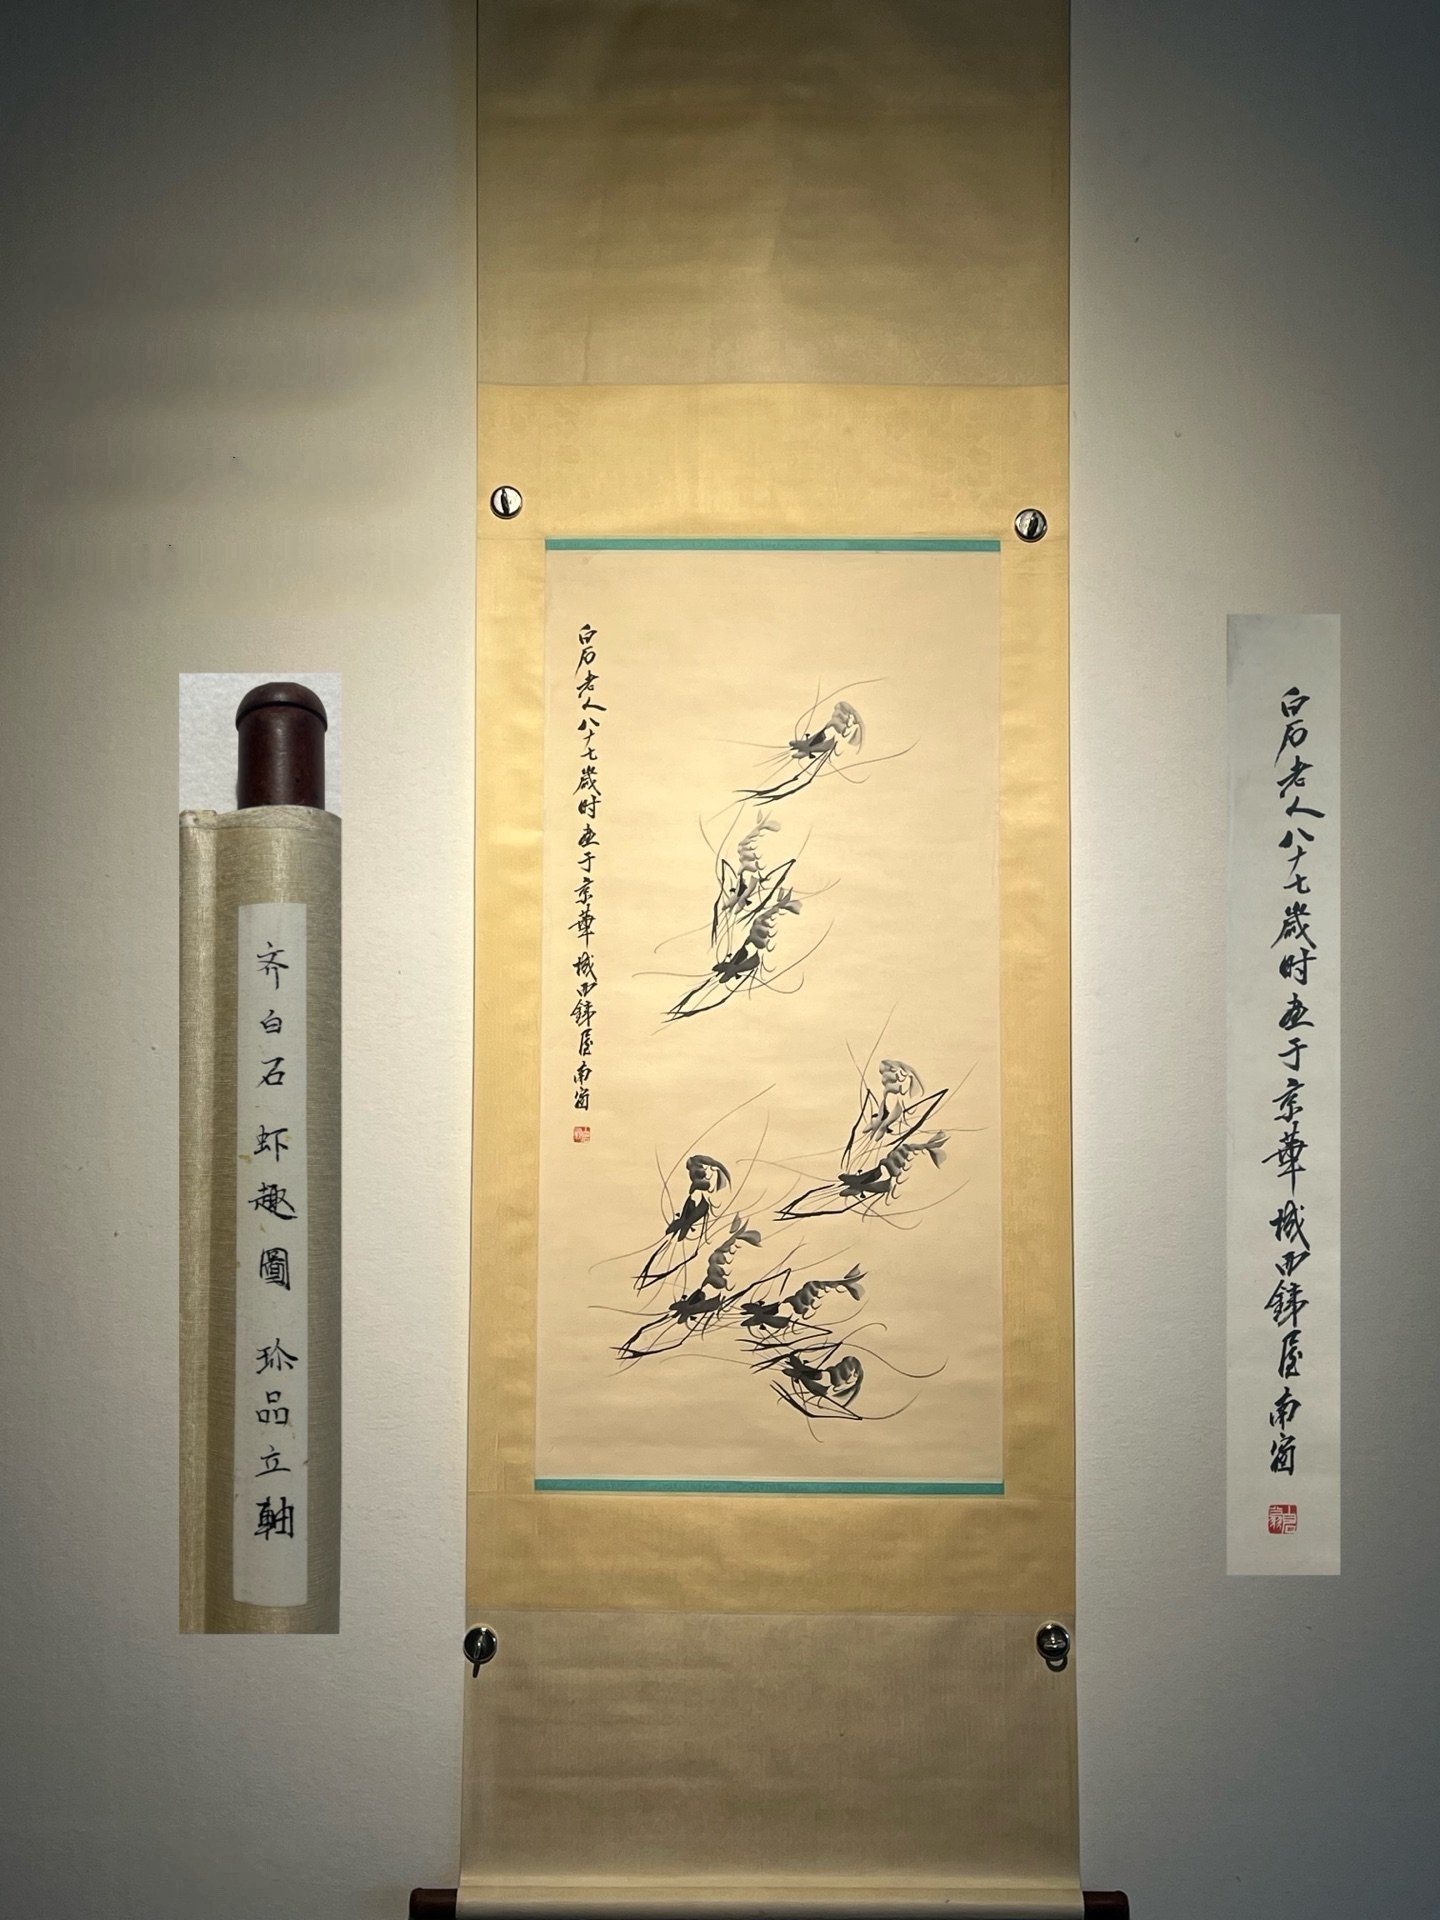 齐白石虾趣圖 珍品立軸
白石老人八十七歲时画于京華城西鐵屋南窗
白石老人八十七歲时画于京華城西鐵屋南窗